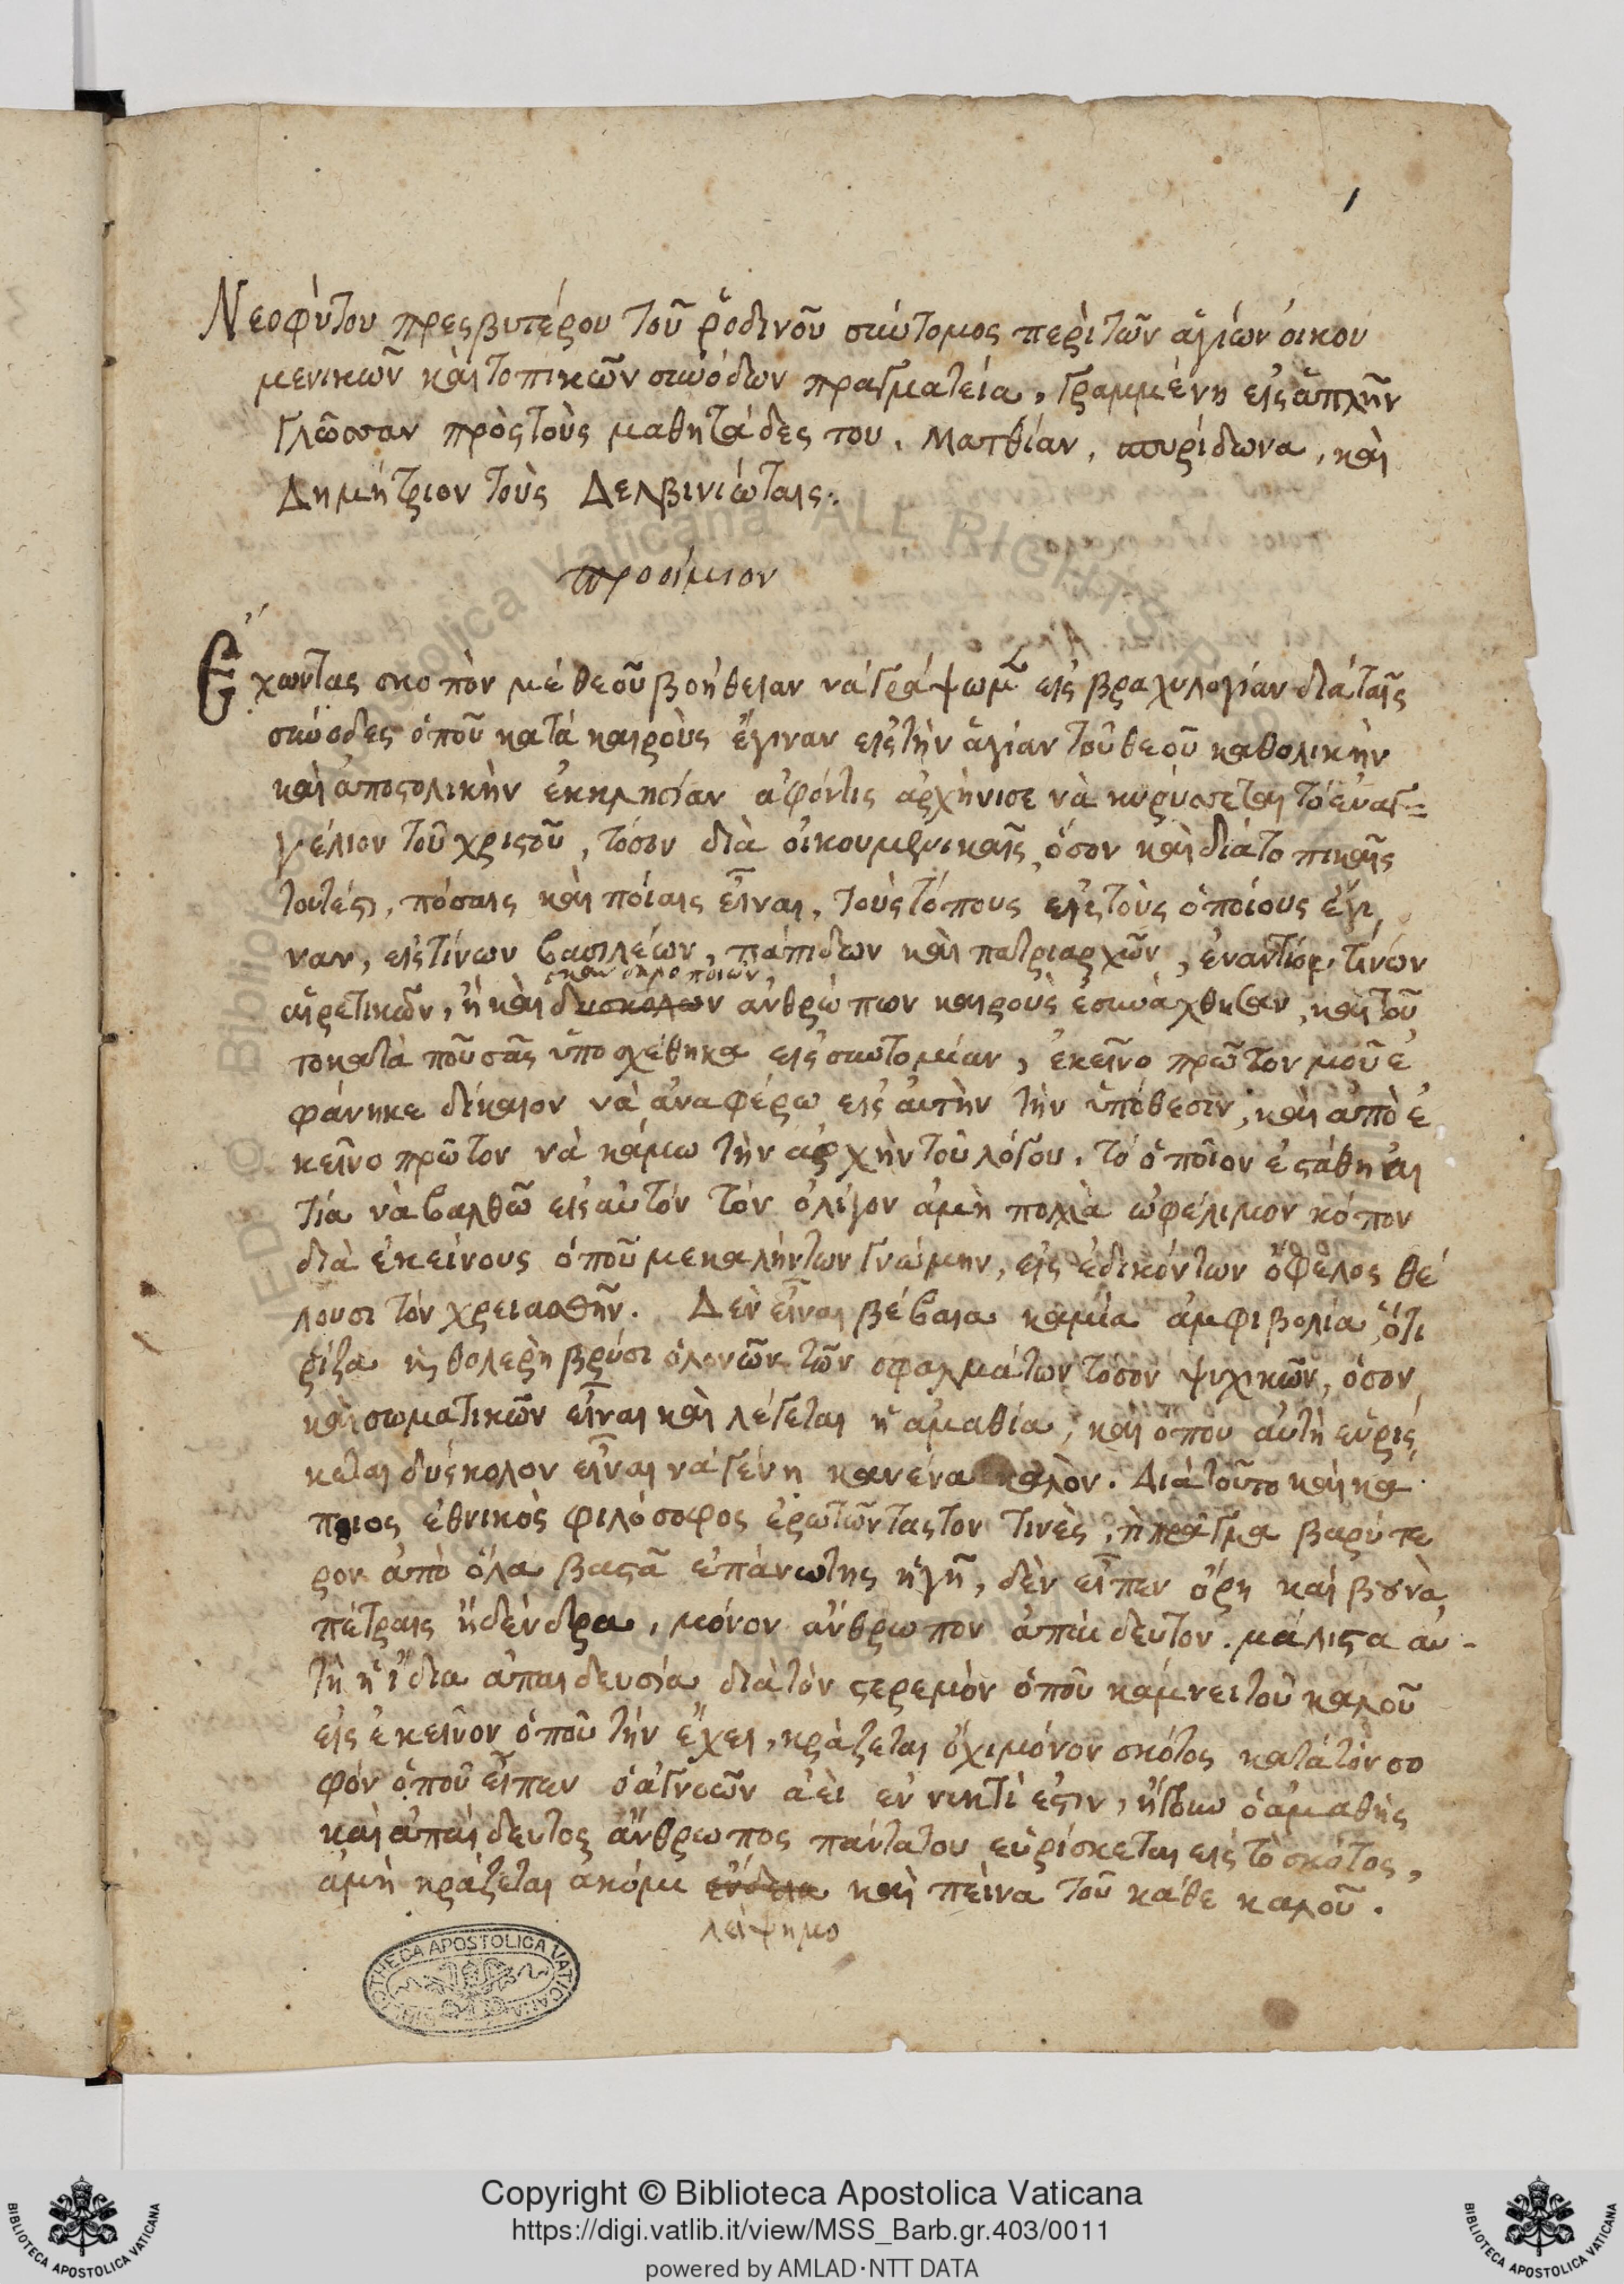 1
Νεοφύτου πρεσβυτέρου τοῦ ῥοδινοῦ σύντομος περὶ τῶν ἁγίων οἰκου
μενικῶν καὶ τοπικῶν συνόδων πραγματεία, γραμμένη εἰς ἁπλῆν
γλῶσσαν πρὸς τοὺς μαθητάδες του, Ματθίαν, σπυρίδωνα, καὶ
Δημήτριον τοὺς Δελβινιώταις.
προοίμιον
Ἔχωντας σκοπὸν μὲ θεοῦ βοήθειαν νὰ γράψωμεν εἰς βραχυλογίαν διὰ ταῖς
σύνοδες ὁποῦ κατὰ καιροὺς ἔγιναν εἰς τὴν ἁγίαν τοῦ θεοῦ καθολικὴν
καὶ ἀποστολικὴν ἐκκλησίαν ἀφόντις ἀρχήνισε νὰ κυρύσσεται τὸ εὐαγ=
γέλιον τοῦ χριστοῦ, τόσον διὰ οἰκουμενικαῖς, ὅσον καὶ διὰ τοπικαῖς
τουτέστι, πόσαις καὶ ποίαις εἶναι, τοὺς τόπους εἰς τοὺς ὁποίους ἔγι
ναν, εἰς τίνων βασιλέων, πάπιδων καὶ πατριαρχῶν, ἐναντίον τινῶν
σκανδαλοποιῶν,
αἱρετικῶν, ἢ καὶ δυσκόλων ἀνθρώπων καιροὺς ἐσυνάχθηκαν, καὶ τοῦ
το κατὰ ποῦ σᾶς ὑποσχέθηκα εἰς συντομίαν, ἐκεῖνο πρῶτον μοῦ ἐ
φάνηκε δίκαιον νὰ ἀναφέρω εἰς αὐτὴν τὴν ὑπόθεσιν, καὶ ἀπὸ ἐ
κεῖνο πρῶτον νὰ κάμω τὴν ἀρχὴν τοῦ λόγου, τὸ ὁποῖον ἐστάθη αἰ
τία νὰ βαλθῶ εἰς αὐτόν τὸν ὀλίγον ἀμὴ πολλὰ ὠφέλιμον κόπον
διὰ ἐκείνους ὁποῦ με καλήν των γνώμην, εἰς ἐδικόν των ὄφελος θέ
λουσι τὸν χρειασθῆν. Δὲν εἶναι βέβαια καμία ἀμφιβολία, ὅτι
ρίζα κὴ θολερὴ βρύσι ὁλονῶν τῶν σφαλμάτων τόσον ψυχικῶν, ὅσον
καὶ σωματικῶν εἶναι καὶ λέγεται ἡ ἀμαθία, καὶ ὅπου αὐτὴ εὑρίσ
κεται δύσκολον εἶναι νὰ γένῃ κανένα καλὸν. Διὰ τοῦτο καὶ κά
ποιος ἐθνικὸς φιλόσοφος ἐρωτῶντας τον τινὲς, τί πρᾶγμα βαρύτε
ρον ἀπὸ ὅλα βαστᾶ ἐπάνω της ἡ γῆ, δὲν εἶπεν ὄρη καὶ βουνὰ
πέτραις ἢ δένδρα, μόνον ἄνθρωπον ἀπαίδευτον. μάλιστα αὐ-
τὴ ἡ ἴδια ἀπαιδευσία διὰ τὸν στερεμὸν ὁποῦ κάμνει τοῦ καλοῦ
εἰς ἐκεῖνον ὁποῦ τὴν ἔχει, κράζεται ὄχι μόνον σκότος κατὰ τὸν σο
φόν ὁποῦ εἶπεν ὁ ἀγνοῶν ἀεὶ ἐν νυκτὶ ἐστιν, ἤγουν ὁ ἀμαθὴς
καὶ ἀπαίδευτος ἄνθρωπος πάντα του εὑρίσκεται εἰς τὸ σκότος,
ἀμὴ κράζεται ἀκόμι ἔνδεια καὶ πεῖνα τοῦ κάθε καλοῦ.
λείψημο
BIBLIOTHECA APOSTOLICA VATICANA
Copyright © Biblioteca Apostolica Vaticana
https://digi.vatlib.it/view/MSS_Barb.gr.403/0011
powered by AMLAD·NTT DATA
BIBLIOTECA APOSTOLICA VATICANA
BIBLIOTECA APOSTOLICA VATICANA